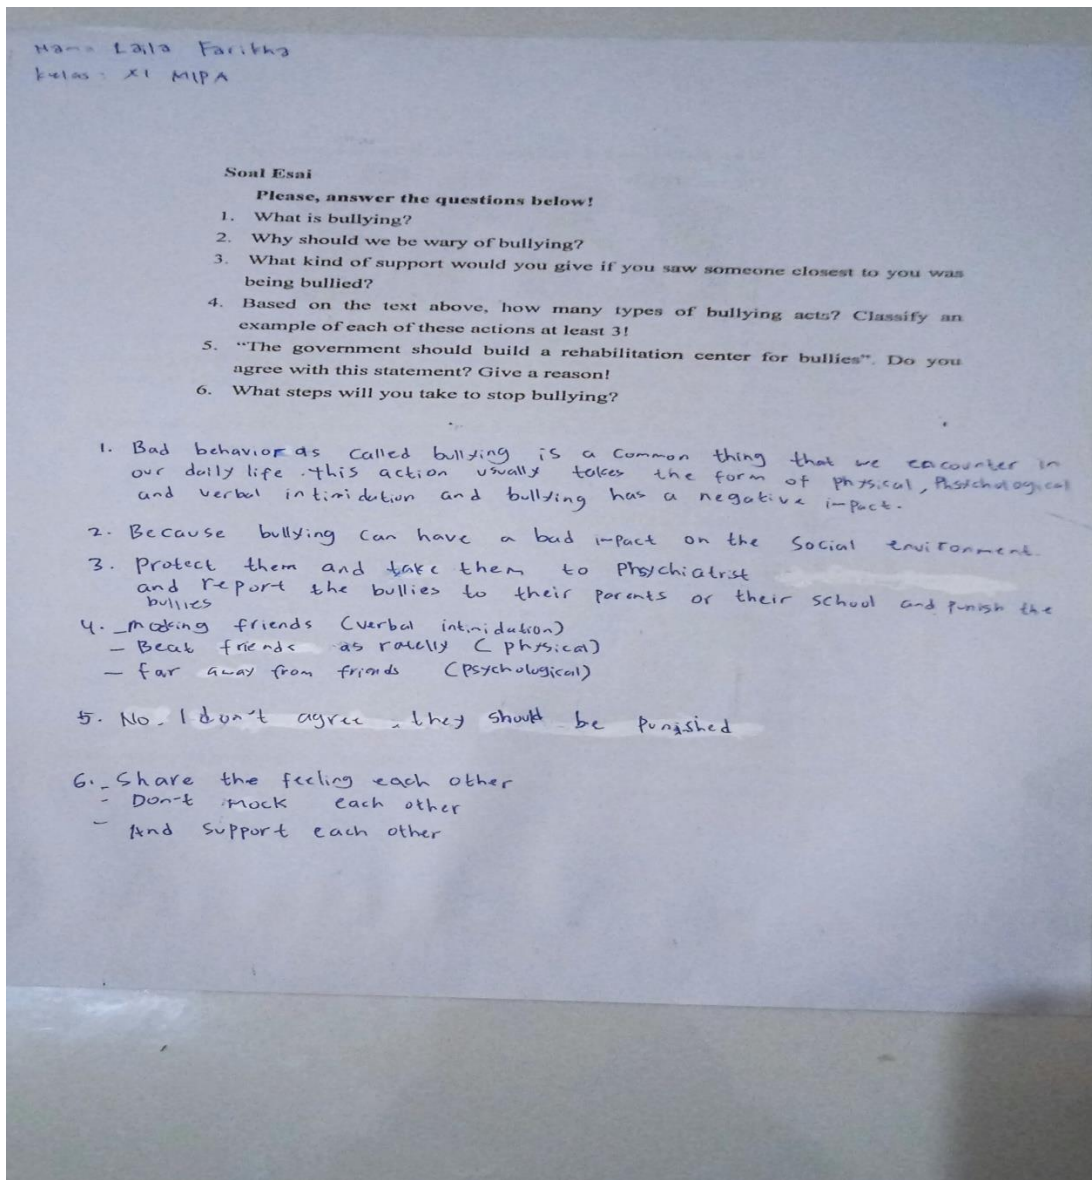 Nama Laila Farikha
kelas : XI MIPA
Soal Esai
Please, answer the questions below!
1. What is bullying?
2. Why should we be wary of bullying?
3. What kind of support would you give if you saw someone closest to you was
being bullied?
4. Based on the text above, how many types of bullying acts? Classify an
example of each of these actions at least 3!
5. “The government should build a rehabilitation center for bullies”. Do you
agree with this statement? Give a reason!
6. What steps will you take to stop bullying?
1. Bad behavior as called bullying is a common thing that we encounter in
our daily life . this action usually takes the form of physical, Phsichological
and verbal intimidation and bullying has a negative impact.
2. Because bullying can have a bad impact on the social environment.
3. Protect them and take them to Phsychiatrist
and report the bullies to their parents or their school and punish the
bullies
4. - mocking friends (verbal intimidation)
- Beat friends as (physical)
- far away from friends (psychological)
5. No. I don't agree , they should be punished
6. - Share the feeling each other
- Don't mock each other
- And support each other